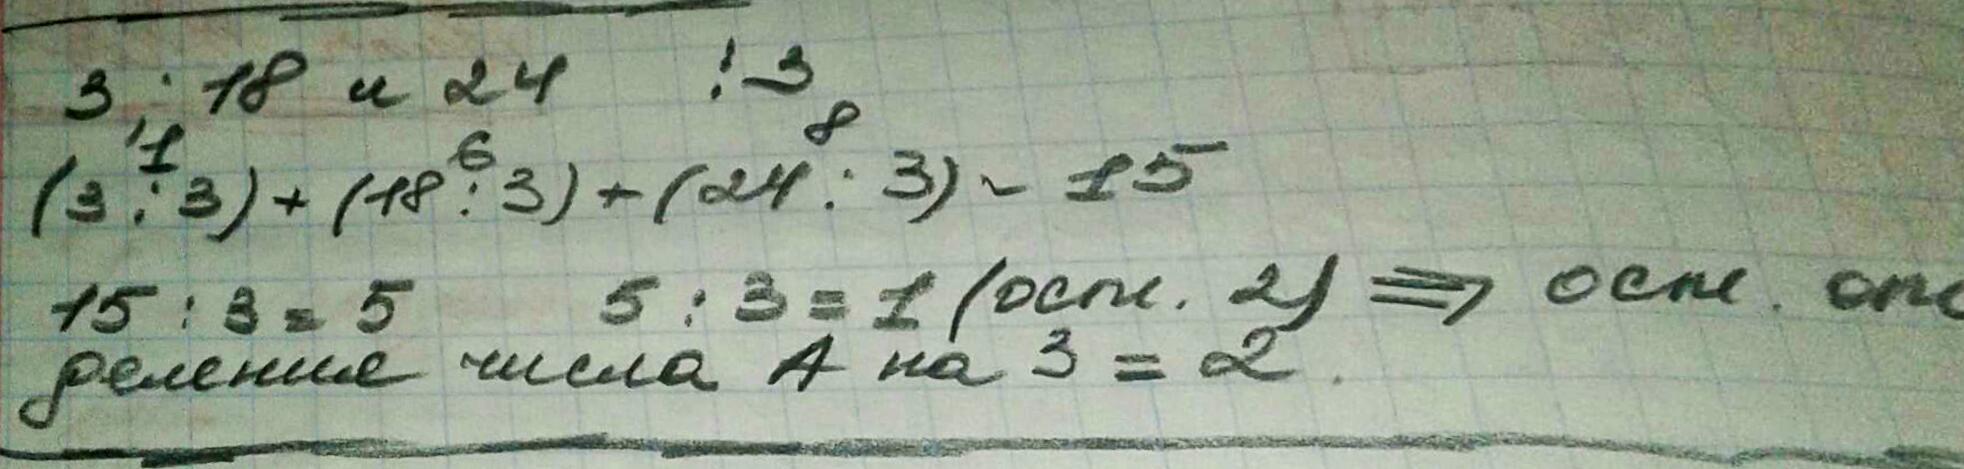 3; 18 и 24 : 3
1 6 8
(3 : 3) + (18 : 3) + (24 : 3) = 15
15 : 3 = 5 5 : 3 = 1 (ост. 2) ⟹ ост. от
деление числа А на 3 = 2.